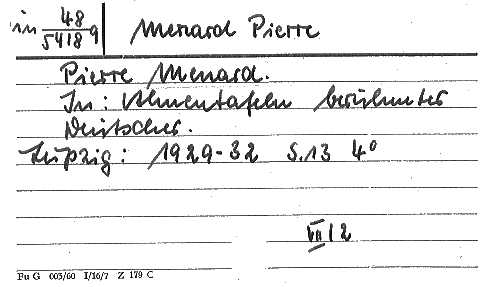 in 48/5418 9 Menard Pierre
Pierre Menard.
In: Ahnentafeln berühmter
Deutscher.
Leipzig: 1929-32 S.13 4°
VII 2
Fu G 003/60 I/16/7 Z 179 C